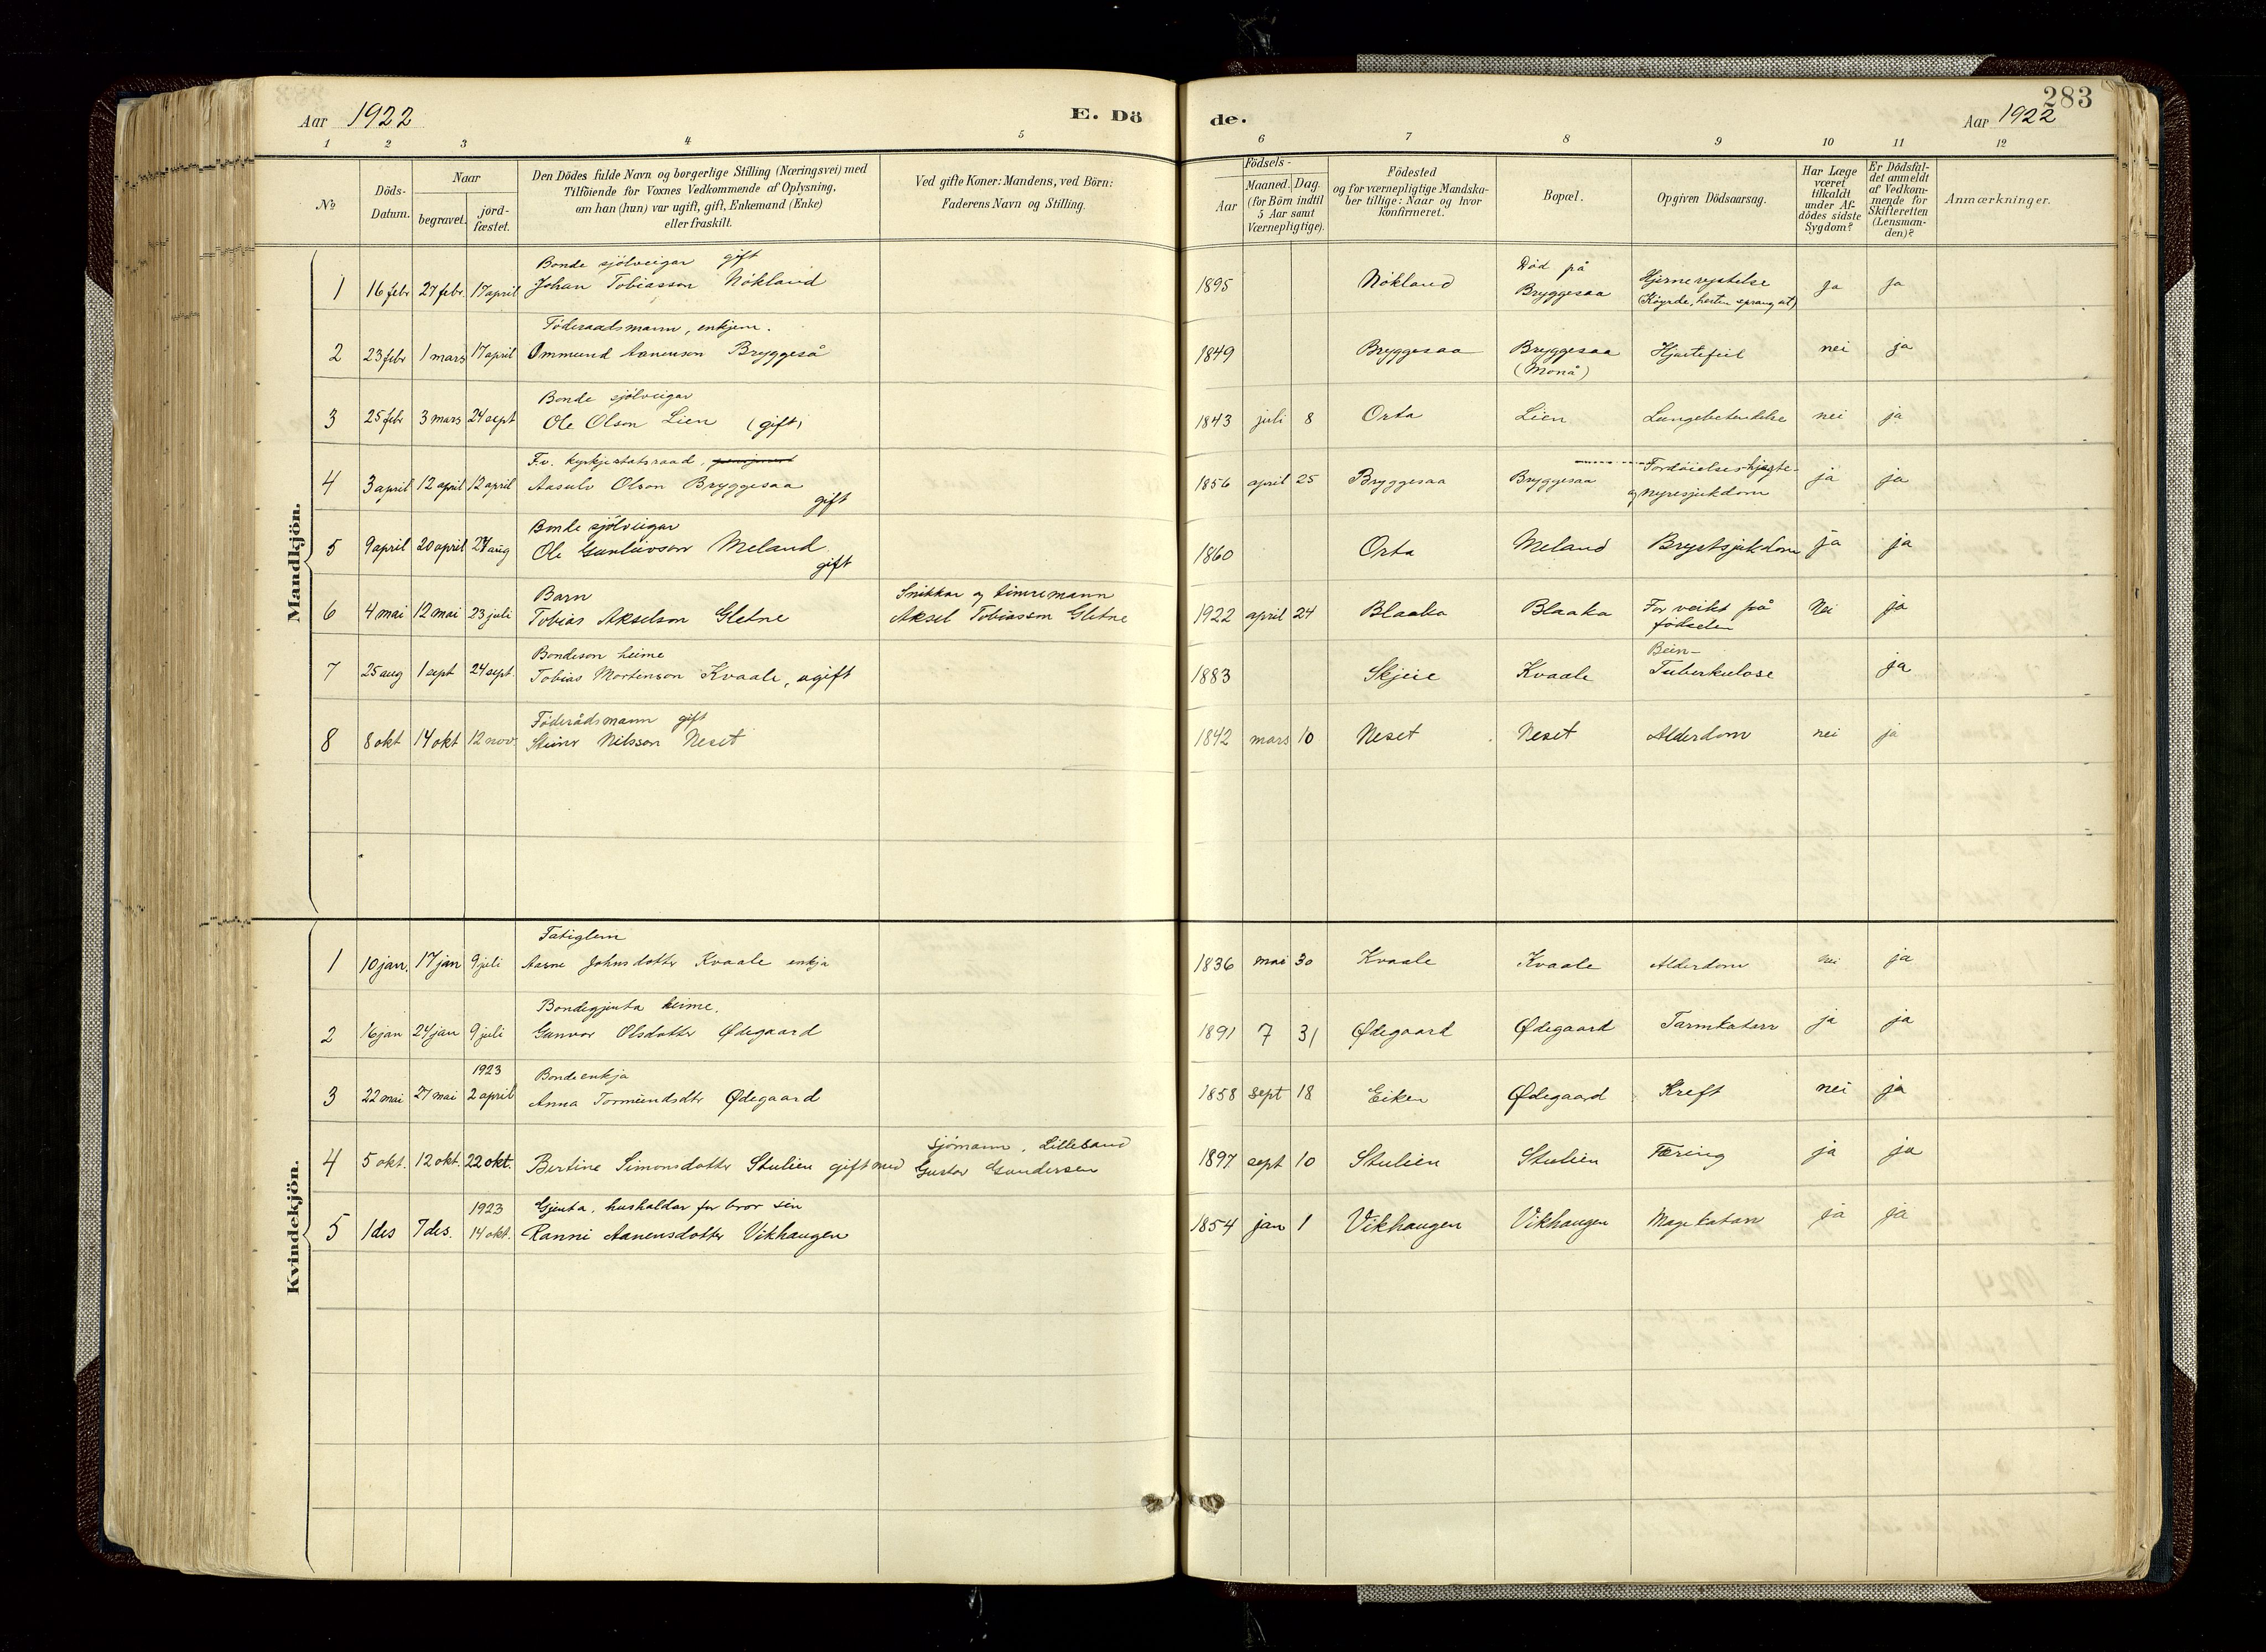 283
Aar 1922
E. Dö
de.
Aar 1922
1 2 3 4 5 6 7 8 9 10 11 12
No
Döds-
Datum.
Naar
begravet.
jörd-
fæstet.
Den Dödes fulde Navn og borgerlige Stilling (Næringsvei) med
Tilföiende for Voxnes Vedkommende af Oplysning,
om han (hun) var ugift, gift, Enkemand (Enke)
eller fraskilt.
Ved gifte Koner: Mandens, ved Börn:
Faderens Navn og Stilling.
Födsels-
Aar
Maaned.
Dag.
(for Börn indtil
5 Aar samt
Værnepligtige).
Födested
og for værnepligtige Mandska-
ber tillige: Naar og hvor
konfirmeret.
Bopæl.
Opgiven Dödsaarsag.
Har Læge
været
tilkaldt
under Af-
dödes sidste
Sygdom?
Er Dödsfal-
det anmeldt
af Vedkom-
mende for
Skifteretten
(Lensman-
den)?
Anmærkninger.
Mandkjön.
Bonde sjölveigar gift
Död på
Hjernerystelse
1 16 febr 27 febr. 17 april Johan Tobiasson Nökland 1895 Nökland Bryggesaa (Köyrde, hesten sprang ut) ja ja
Föderaadsmann, enkjem.
2 23 febr 1 mars 17 april Ommund Aanenson Bryggeså 1849 Bryggesaa Bryggesaa Hjartefeil nei ja
(Monå)
Bonde sjölveigar
3 25 febr 3 mars 24 sept Ole Olson Lien (gift) 1843 juli 8 Orta Lien Lungebetendelse nei ja
F.v. kyrkjestatsraad,
Fordöielses- hjarte-
4 3 april 12 april 12 april Aasulv Olson Bryggesaa 1856 april 25 Bryggesaa Bryggesaa og nyresjukdom ja ja
gift
Bonde sjölveigar
5 9 april 20 april 27 aug Ole Gunleivson Meland 1860 Orta Meland Brystsjukdom ja ja
gift
Barn
Snikkar og timremann
6 4 mai 12 mai 23 juli Tobias Akselson Gletne Aksel Tobiasson Gletne 1922 april 24 Blaaka Blaaka For veikt på Nei ja
födselen
Bondeson heime
Bein-
7 25 aug 1 sept 24 sept. Tobias Mortenson Kvaale, ugift 1883 Skjeie Kvaale Tuberkulose ja
Föderådsmann gift
8 8 okt 14 okt 12 nov. Steinr Nilsson Neset 1842 mars 10 Neset Neset Alderdom nei ja
Kvindekjön.
Fatiglem
1 10 jan. 17 jan 9 juli Aasne Johnsdotter Kvaale enkja 1836 mai 30 Kvaale Kvaale Alderdom nei ja
Bondegjenta heime.
2 16 jan 24 jan 9 juli Gunvor Olsdotter Ødegaard 1891 7 31 Ødegaard Ødegaard Tarmkatarr ja ja
1923 Bondeenkja
3 22 mai 27 mai 2 april Anna Tormundsdtr Ødegaard 1858 sept 18 Eiken Ødegaard Kreft nei ja
sjömann, Lillesand
4 5 okt. 12 okt. 22 okt. Bertine Simonsdotter Stulien gift med Gustav Gundersen 1897 sept 10 Stulien Stulien Tæring ja ja
1923 Gjenta, hushaldar for bror sin
5 1 des 7 des. 14 okt. Ranni Aanensdotter Vikhaugen 1854 jan 1 Vikhaugen Vikhaugen Magekatarr ja ja